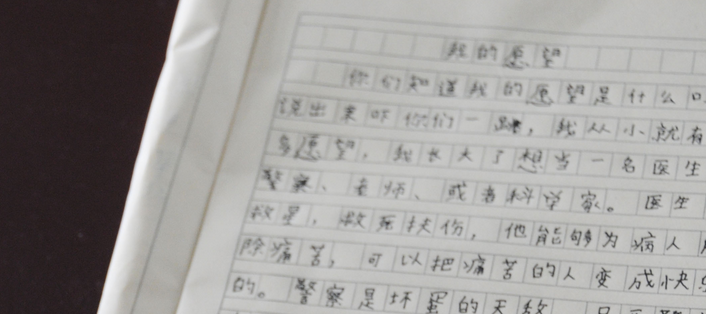 我的愿望
你们知道我的愿望是什么
说出来吓你们一跳，我从小就有
多愿望，我长大了想当一名医生
警察、老师、或者科学家。医生
救星，救死扶伤，他能够为病人
除痛苦，可以把痛苦的人变成快乐
的。警察是坏蛋的天敌